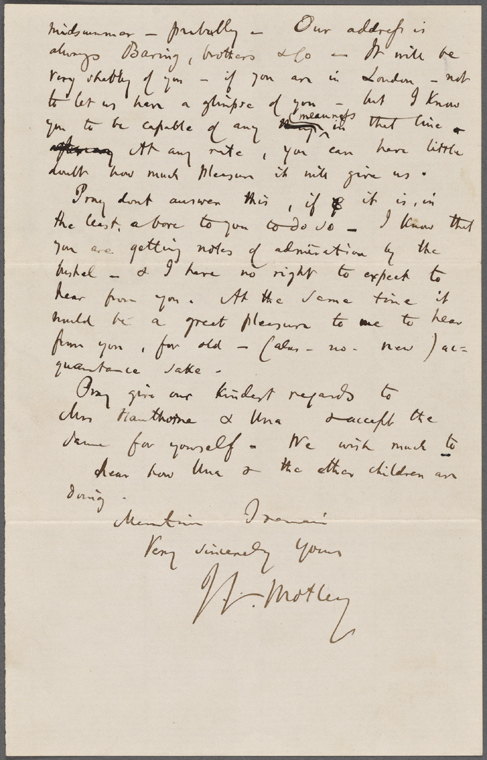 midsummer – probably – Our address is
always Baring, brothers & Co – It will be
very shabby of you – if you are in London – not
to let us have a glimpse of you – but I know
meanness
you to be capable of any in that line
At any rate, you can have little
doubt how much pleasure it will give us.
Pray dont answer this, if it is, in
the least, a bore to you to do so – I know that
you are getting notes of admiration by the
bushel – & I have no right to expect to
hear from you. At the same time it
would be a great pleasure to me to hear
from you, for old – (alas – no – new) ac=
quaintance sake.
Pray give our kindest regards to
Mrs Hawthorne & Una & accept the
same for yourself – We wish much to
hear how Una & the other children are
doing.
Meantime I remain
Very sincerely Yours
J L. Motley